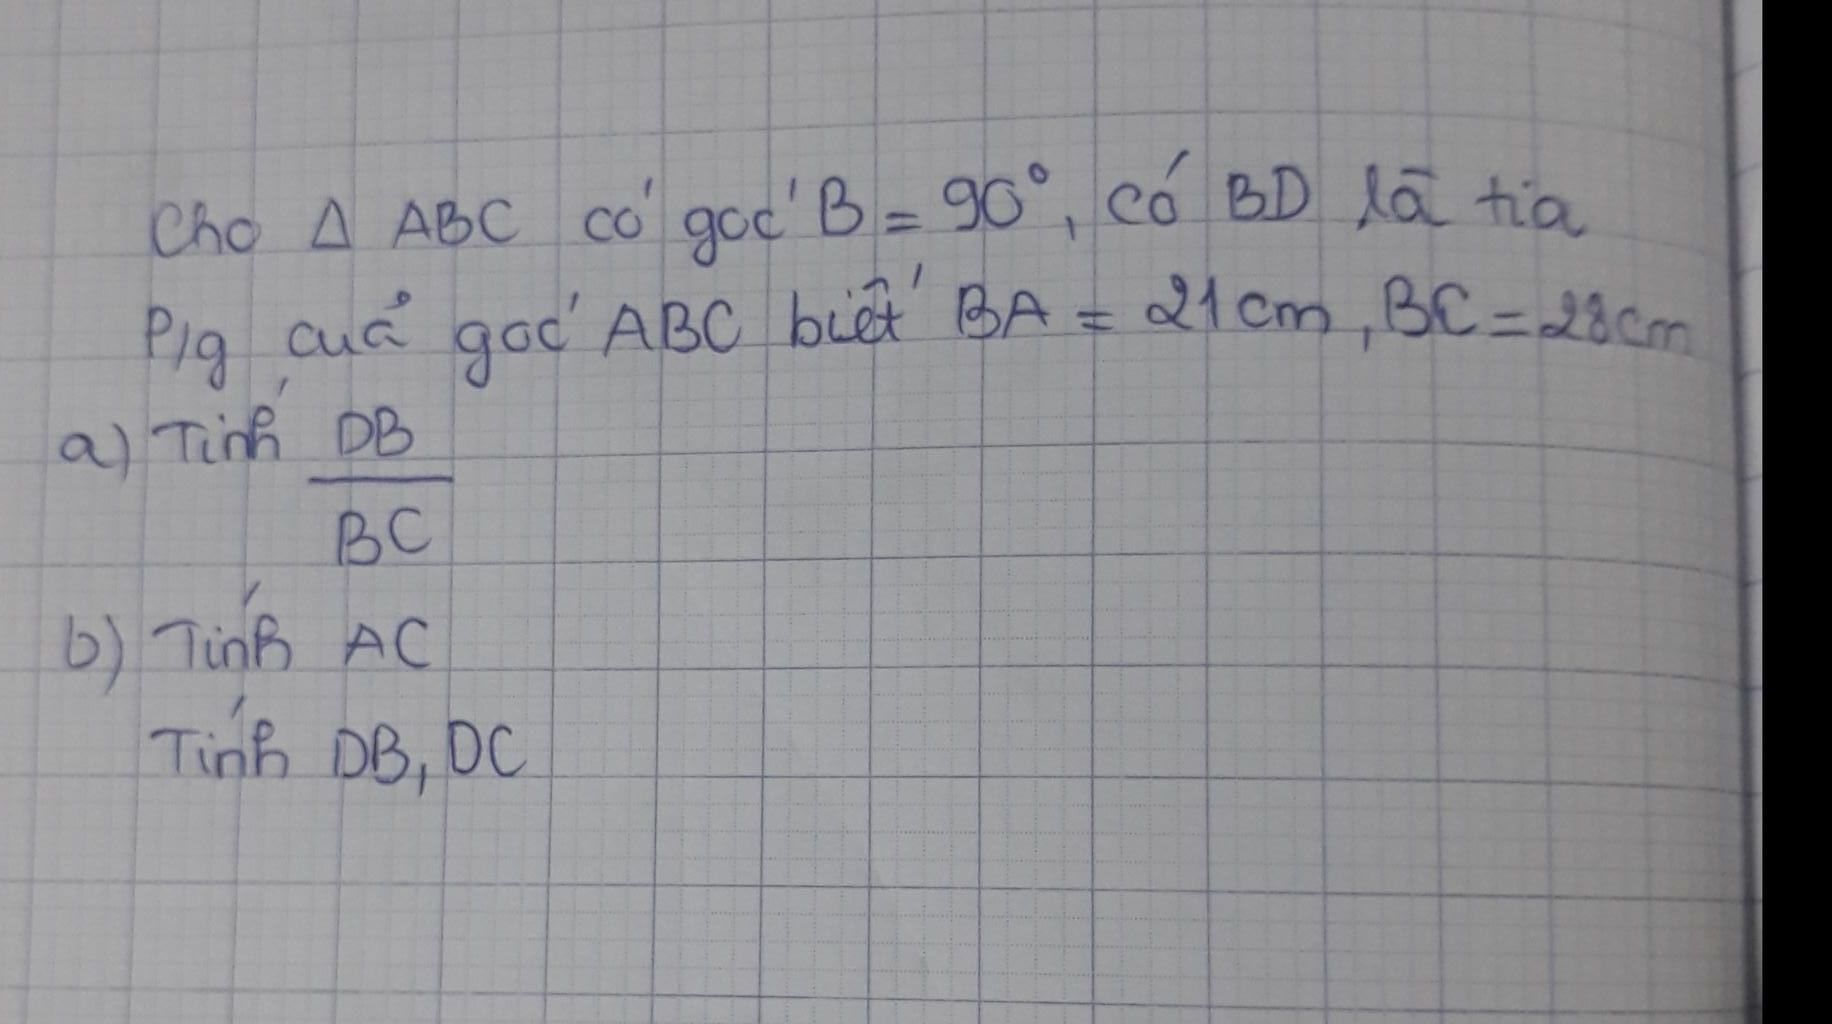 Cho Δ ABC có góc B = 90°, có BD là tia
P/g của góc ABC biết BA = 21 cm, BC = 28 cm
a) Tính DB
BC
b) Tính AC
Tính DB, DC